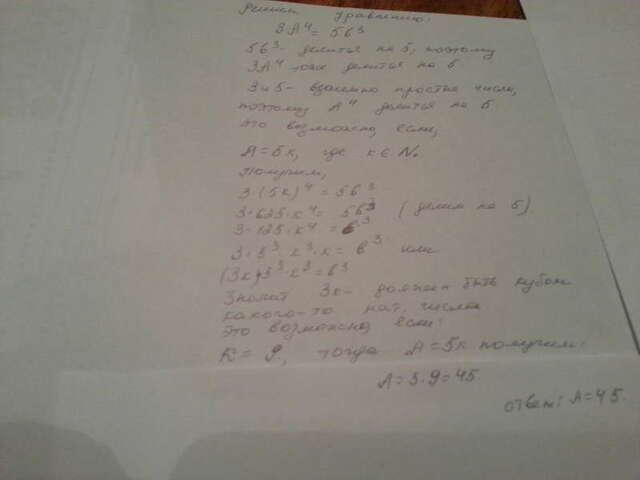 Решим уравнение:
3A⁴ = 5b³
5b³ - делится на 5, поэтому
3A⁴ тоже делится на 5
3 и 5 - взаимно простые числа,
поэтому A⁴ делится на 5
Это возможно, если,
A = 5k, где k ∈ N.
Получим,
3·(5k)⁴ = 5b³
3·625·k⁴ = 5b³ (делим на 5)
3·125·k⁴ = b³
3·5³·k³·k = b³ или
(3k)5³·k³ = b³
Значит 3k - должен быть кубом
какого-то нат. числа
Это возможно, если:
k = 9, тогда A = 5k получим:
A = 5·9 = 45.
ответ: A = 45.